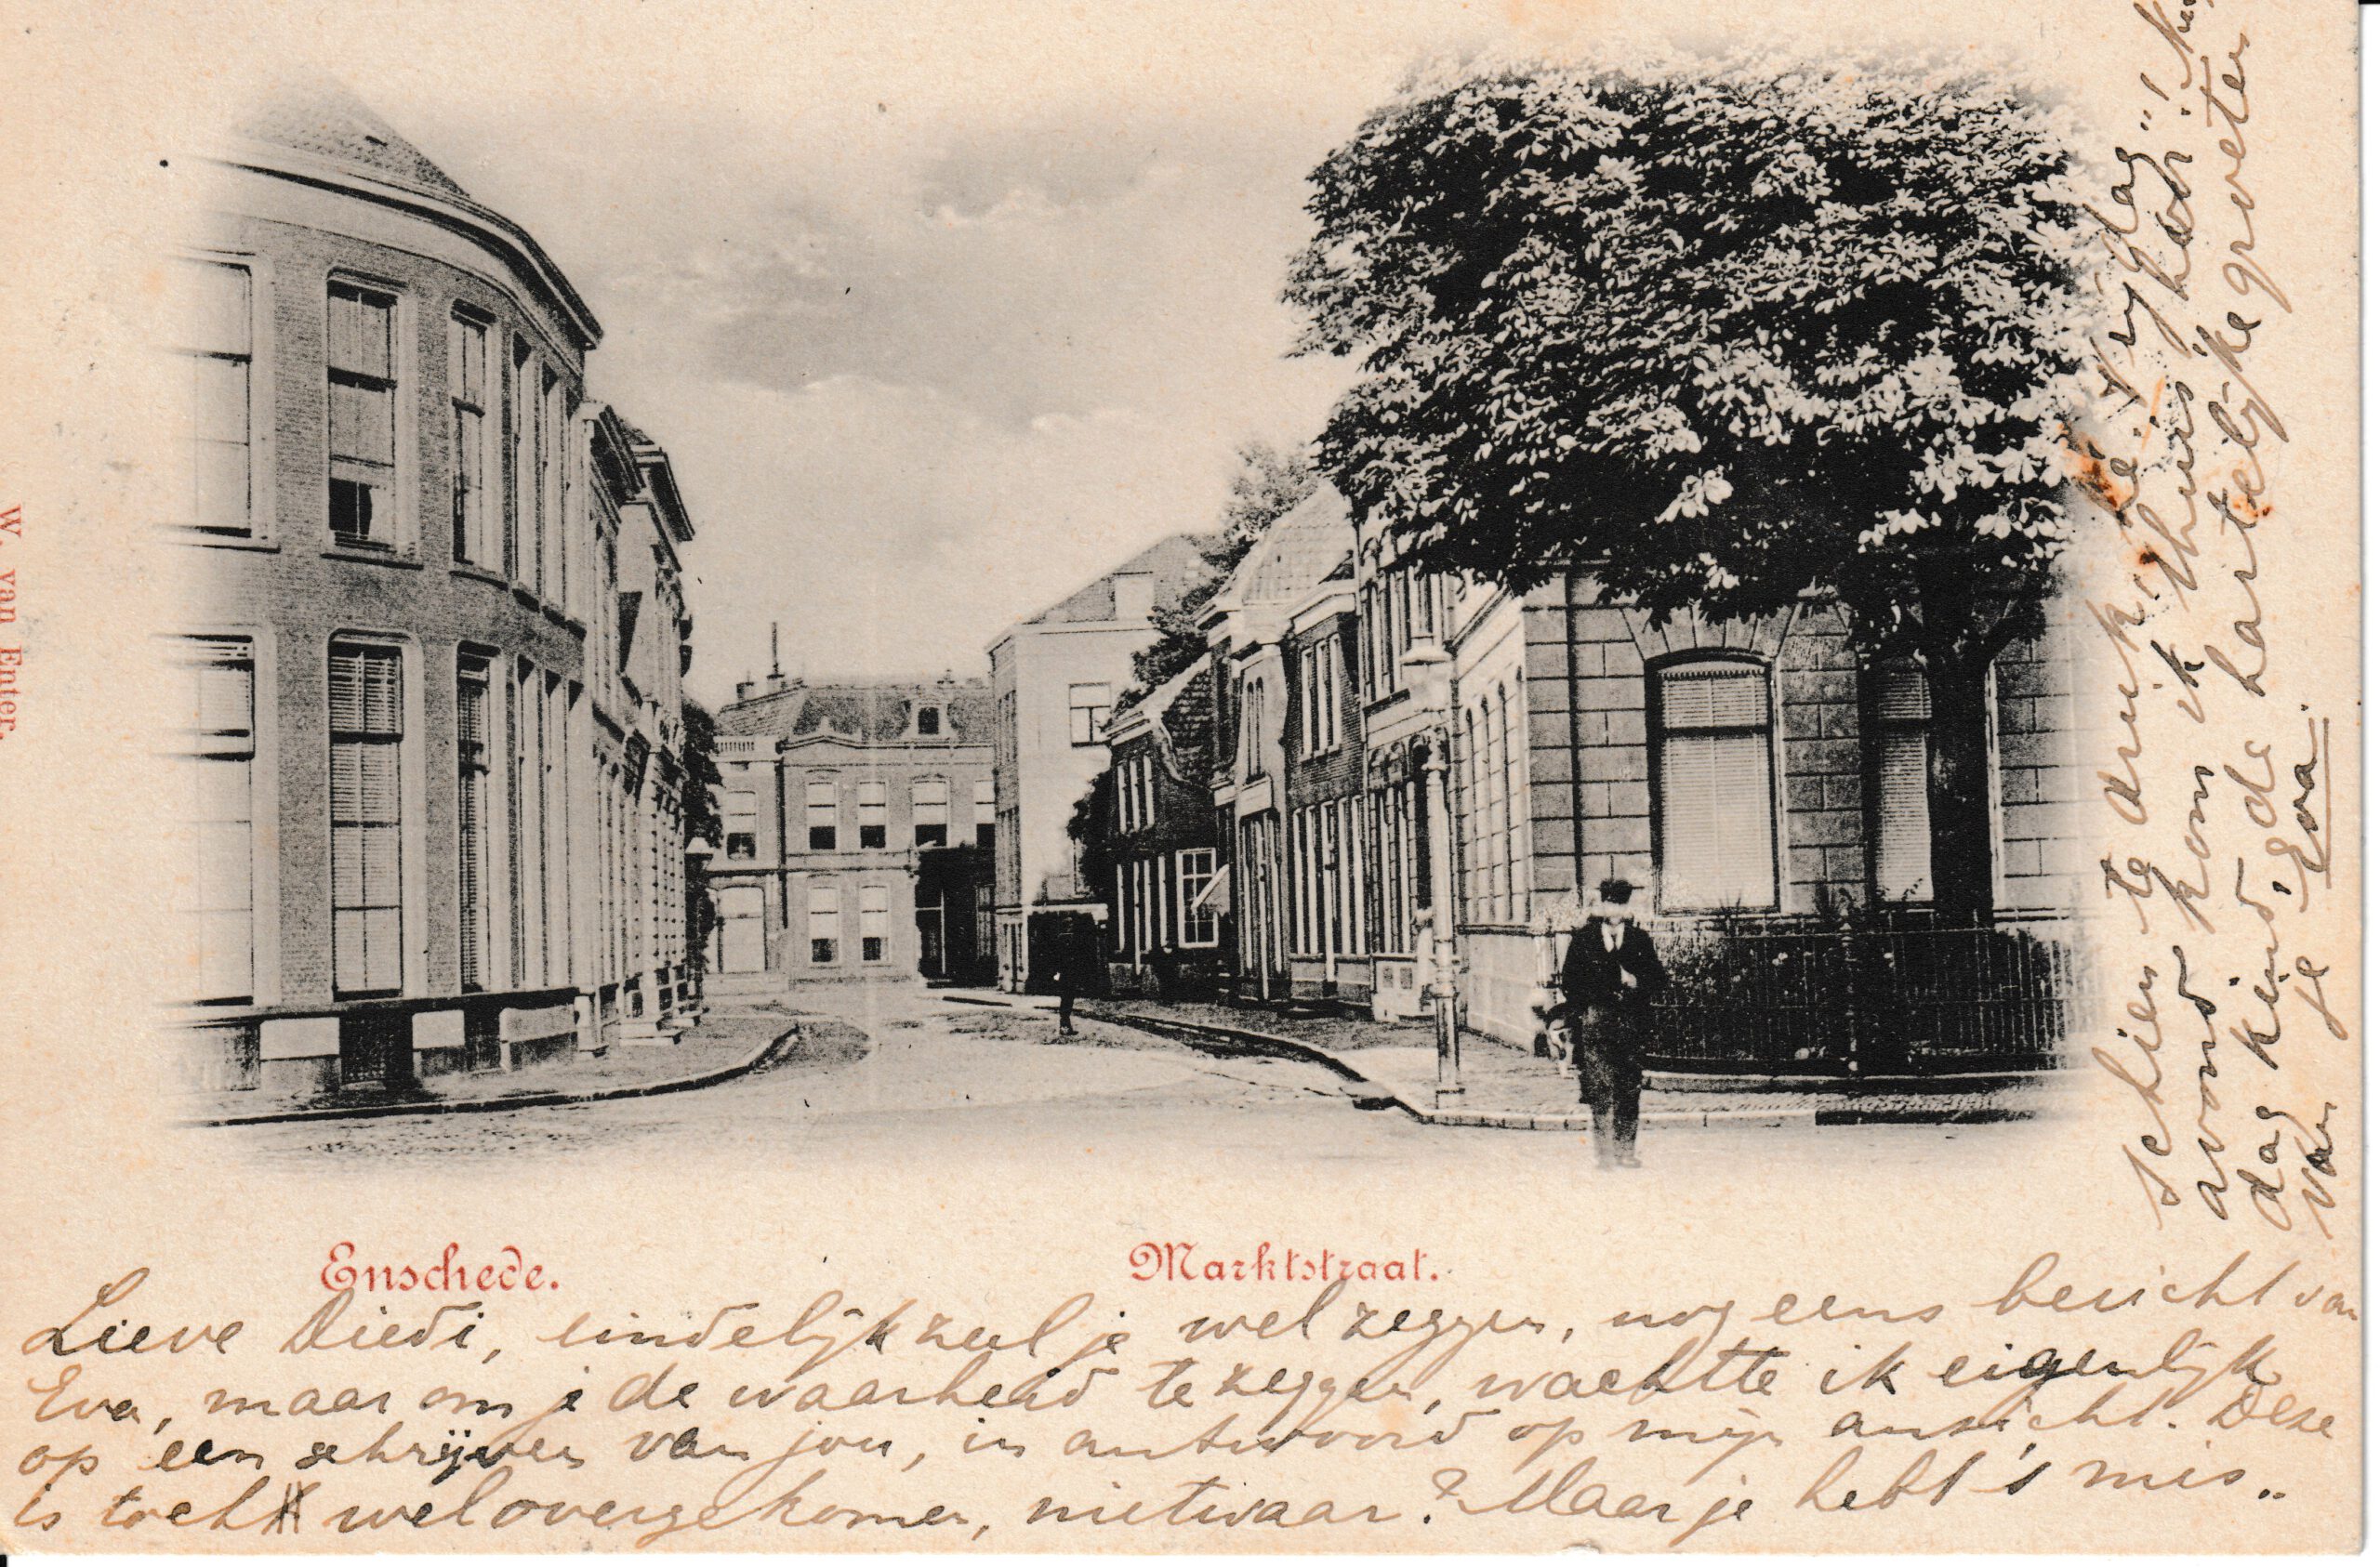 W. van Enter.
Enschede.
Marktstraat.
Lieve Diedi, eindelijk zeul je wel zeggen, nog eens bericht van
Eva, maar om je de waarheid te zeggen, wachtte ik eigenlijk
op een schrijven van jou, in antwoord op mijn ansicht. Deze
is toch wel overgekomen, nietwaar? Maar je hebt 't mis..
schien te druk hè. Vrijdag
avond kom ik thuis, hoor!
dag kind, de hartelijke groeten
van je Eva.